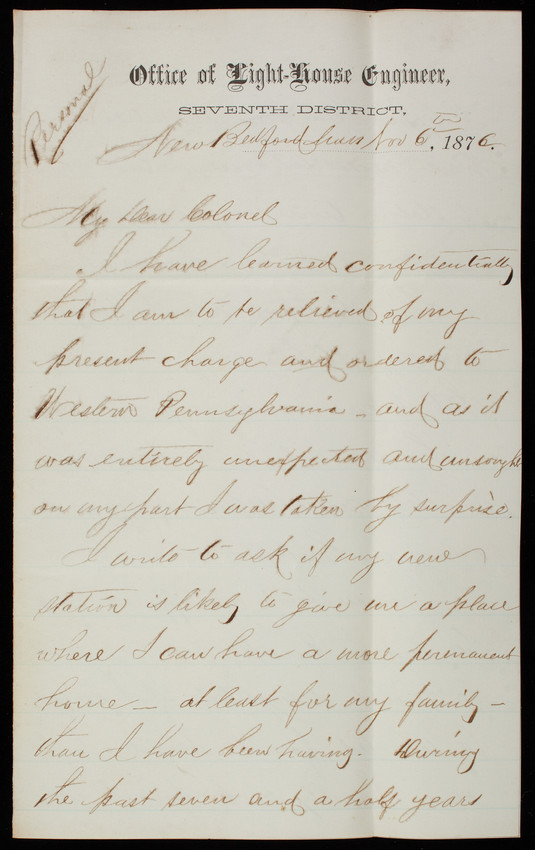 Personal
Office of Light-House Engineer,
SEVENTH DISTRICT,
New Bedford Mass Nov 6th, 1876.
My dear Colonel
I have learned confidentially
that I am to be relieved of my
present charge and ordered to
Western Pennsylvania - and as it
was entirely unexpected and unsought
on my part I was taken by surprise.
I write to ask if my new
station is likely to give me a place
where I can have a more permanent
home - at least for my family -
than I have been having. During
the past seven and a half years